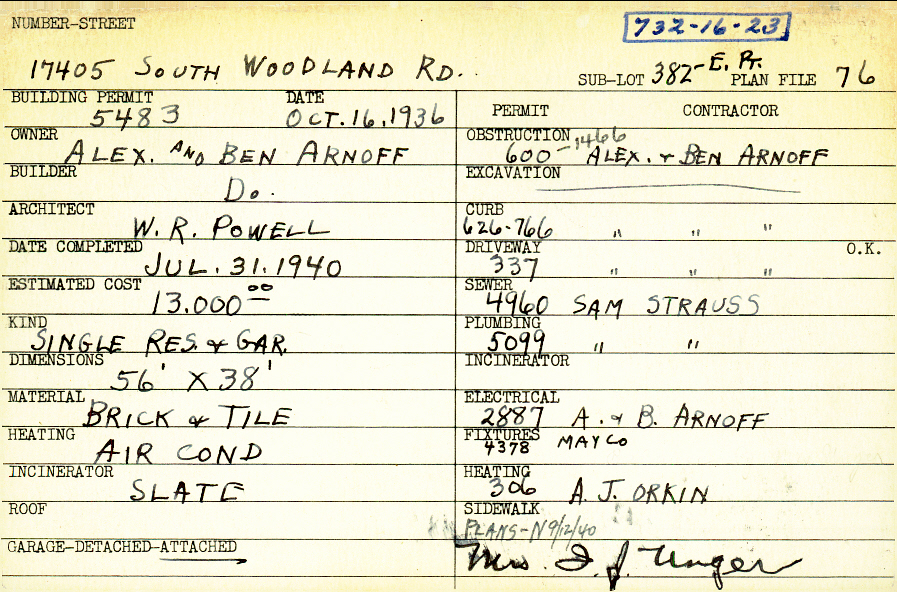 NUMBER-STREET
732-16-23
17405 SOUTH WOODLAND RD.
SUB-LOT 382-E. Pt. PLAN FILE 76
BUILDING PERMIT DATE
5483 OCT. 16, 1936
OWNER
ALEX. AND BEN ARNOFF
BUILDER
Do.
ARCHITECT
W. R. POWELL
DATE COMPLETED
JUL. 31. 1940
ESTIMATED COST
13.000 00
KIND
SINGLE RES. & GAR.
DIMENSIONS
56' X 38'
MATERIAL
BRICK & TILE
HEATING
AIR COND
INCINERATOR
SLATE
ROOF
GARAGE-DETACHED-ATTACHED
PERMIT CONTRACTOR
OBSTRUCTION
600-1466 ALEX. & BEN ARNOFF
EXCAVATION
CURB
626-766 " " "
DRIVEWAY O.K.
337 " " "
SEWER
4960 SAM STRAUSS
PLUMBING
5099 " "
INCINERATOR
ELECTRICAL
2887 A. & B. ARNOFF
FIXTURES
4378 MAYCO
HEATING
306 A. J. ORKIN
SIDEWALK
PLANS-N 9/12/40
Mrs. I. J. Unger